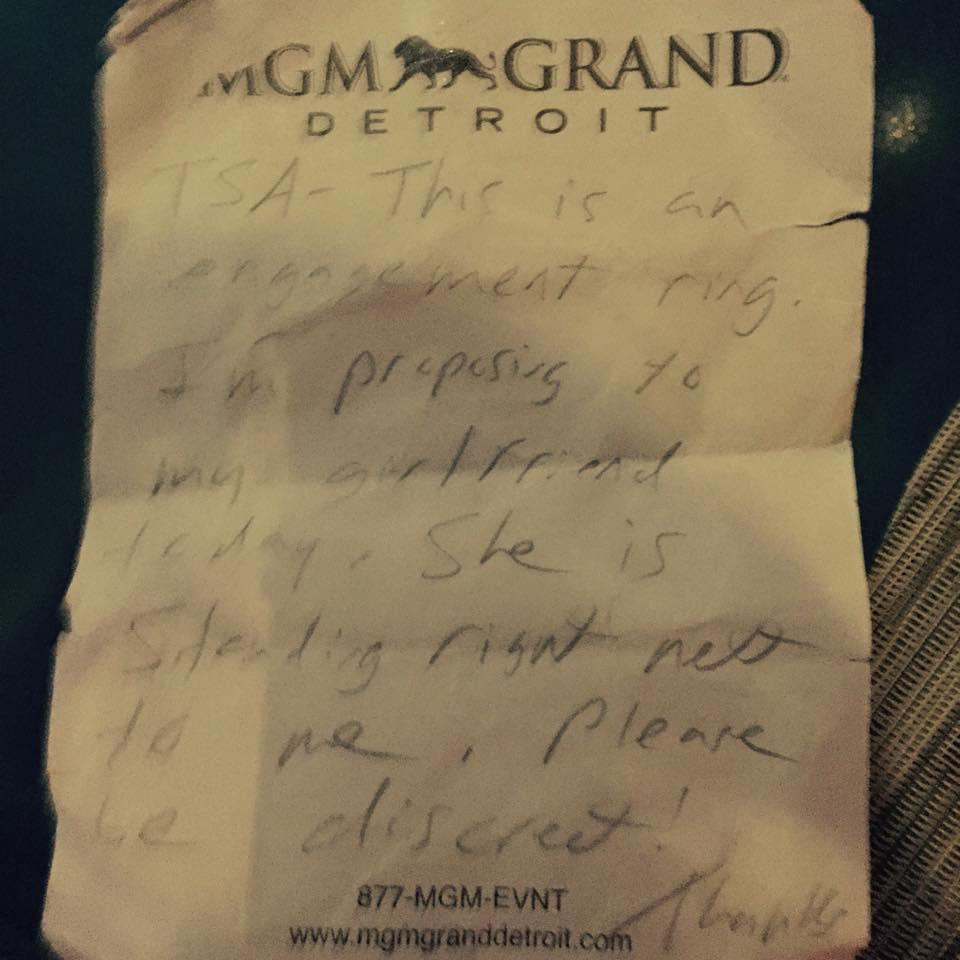 MGM GRAND
DETROIT
TSA- This is an
engagement ring.
I'm proposing to
my girlfriend
today. She is
Standing right next
to me, Please
be discreet!
Thanks
877-MGM-EVNT
www.mgmgranddetroit.com